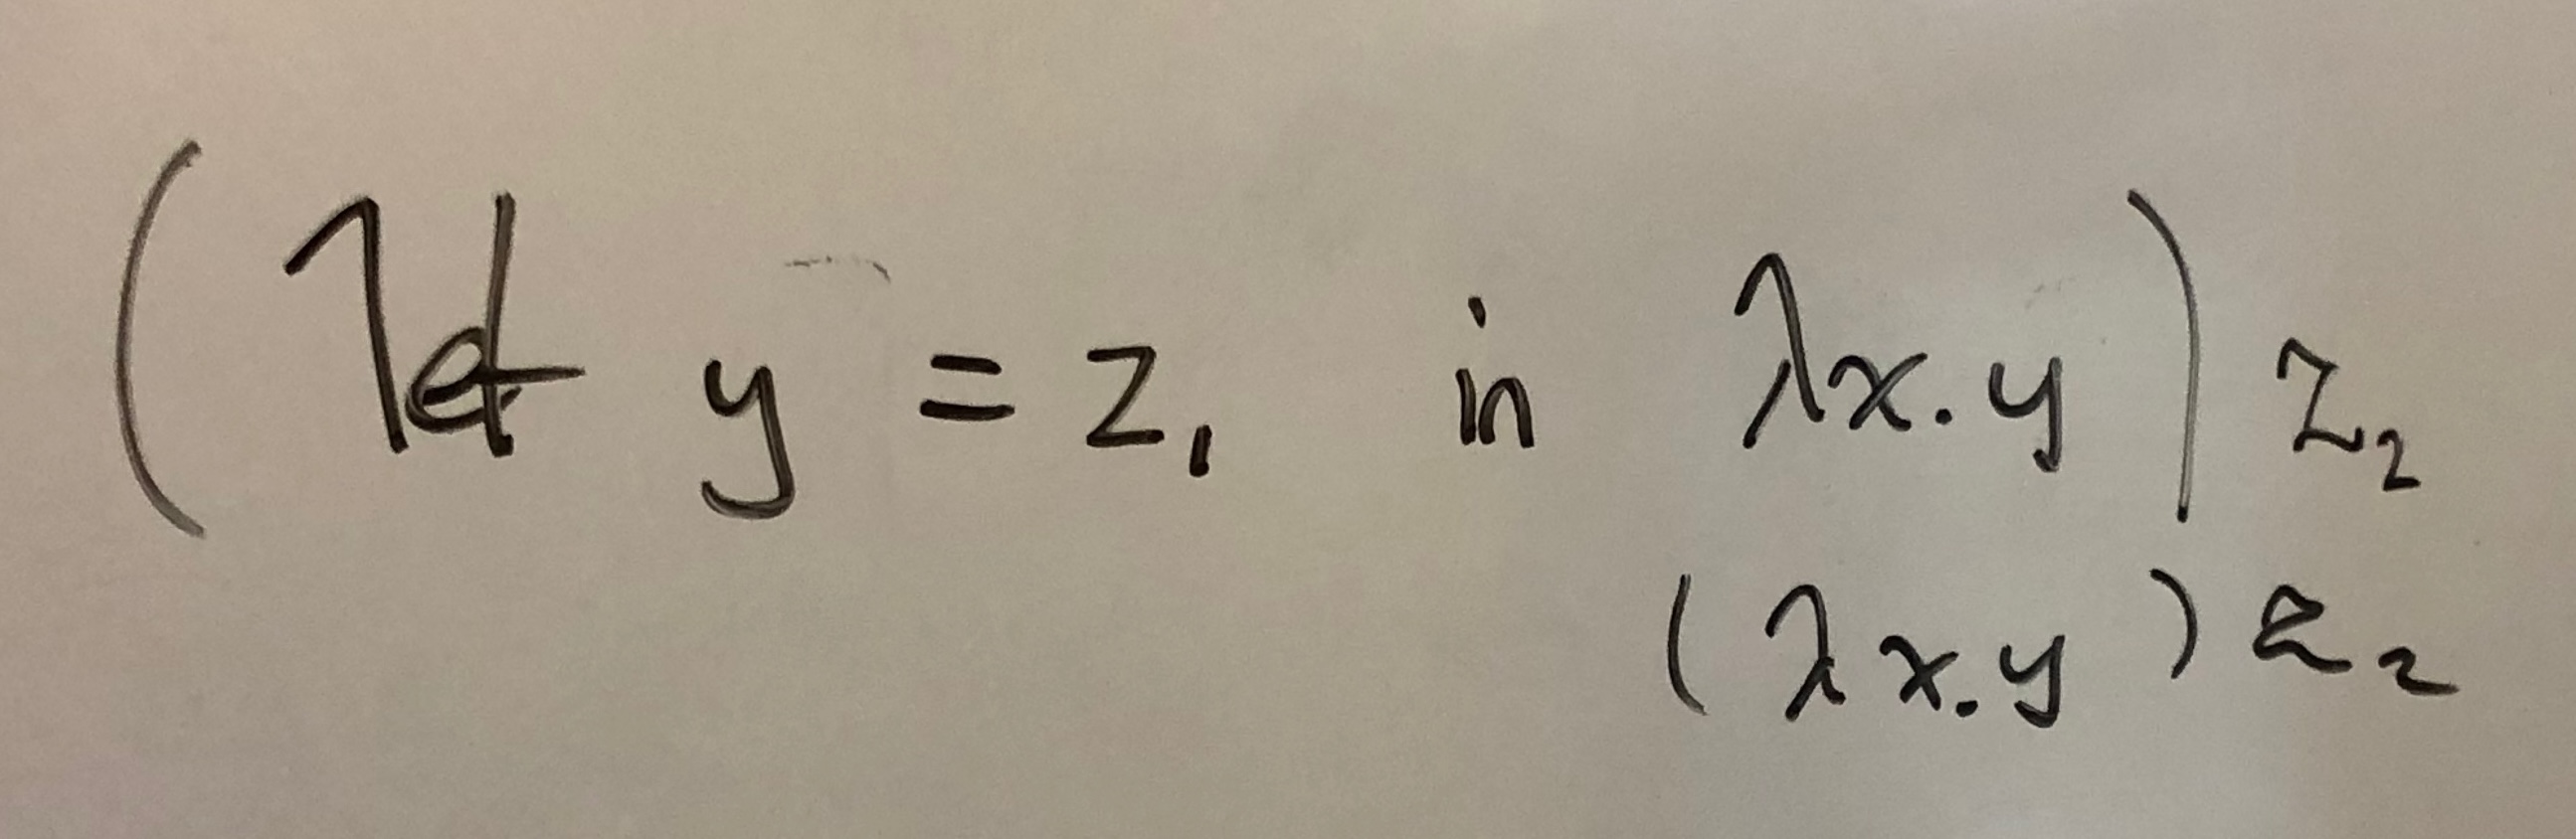 (let y = z₁ in λx.y) z₂
(λx.y) z₂